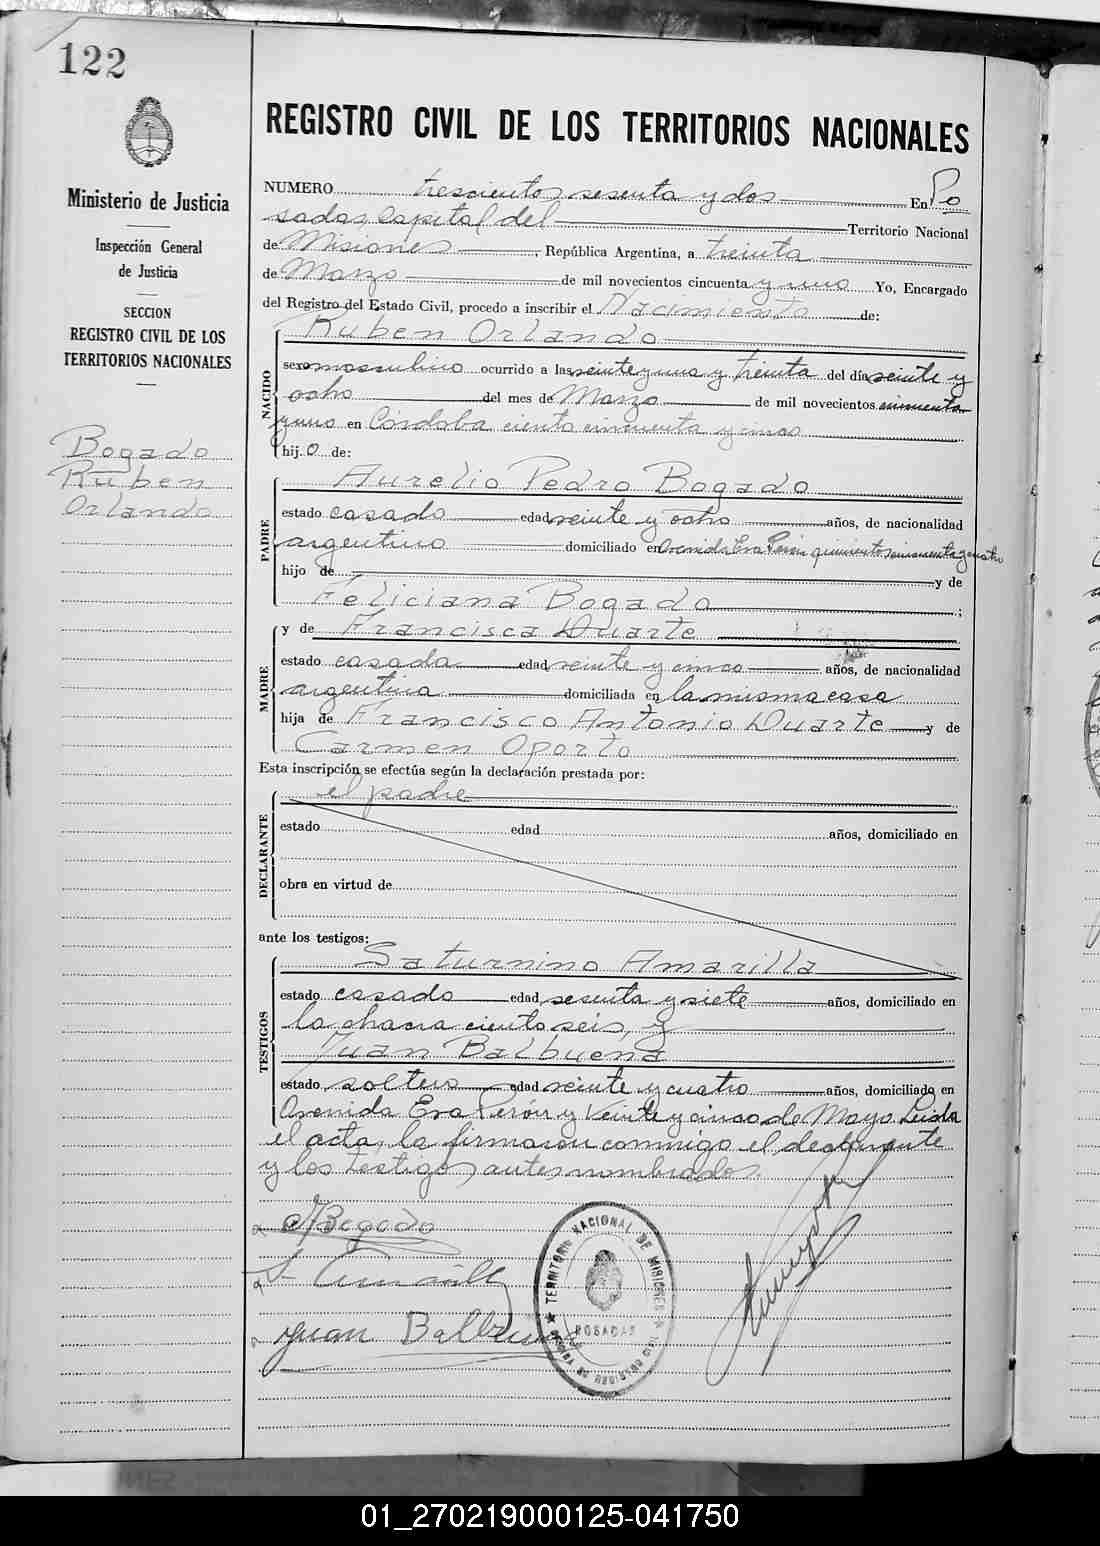 122
Ministerio de Justicia
Inspección General
de Justicia
SECCION
REGISTRO CIVIL DE LOS
TERRITORIOS NACIONALES
Bogado
Ruben
Orlando
REGISTRO CIVIL DE LOS TERRITORIOS NACIONALES
NUMERO trescientos sesenta y dos En Po
sadas, Capital del Territorio Nacional
de Misiones, República Argentina, a treinta
de Marzo de mil novecientos cincuenta y uno Yo, Encargado
del Registro del Estado Civil, procedo a inscribir el Nacimiento de:
Ruben Orlando
NACIDO
sexo masculino ocurrido a las veinte y una y treinta del día veinte y
ocho del mes de Marzo de mil novecientos cincuenta
y uno en Córdoba ciento cincuenta y cinco
hijo de:
PADRE
Aurelio Pedro Bogado
estado casado edad veinte y ocho años, de nacionalidad
argentino domiciliado en Avenida Eva Perón quinientos cincuenta y cuatro
hijo de y de
Feliciana Bogado;
MADRE
y de Francisca Duarte
estado casada edad veinte y cinco años, de nacionalidad
argentina domiciliada en la misma casa
hija de Francisco Antonio Duarte y de
Carmen Oporto
Esta inscripción se efectúa según la declaración prestada por:
DECLARANTE
el padre
estado edad años, domiciliado en
obra en virtud de
ante los testigos:
TESTIGOS
Saturnino Amarilla
estado casado edad sesenta y siete años, domiciliado en
la chacra ciento seis, y
Juan Balbuena
estado soltero edad veinte y cuatro años, domiciliado en
Avenida Eva Perón y Veinte y cinco de Mayo. Leida
el acta, la firmaron conmigo el declarante
y los testigos antes nombrados.
A Bogado
S Amarilla
Juan Balbuena
TERRITORIO NACIONAL DE MISIONES
POSADAS
01_270219000125-041750